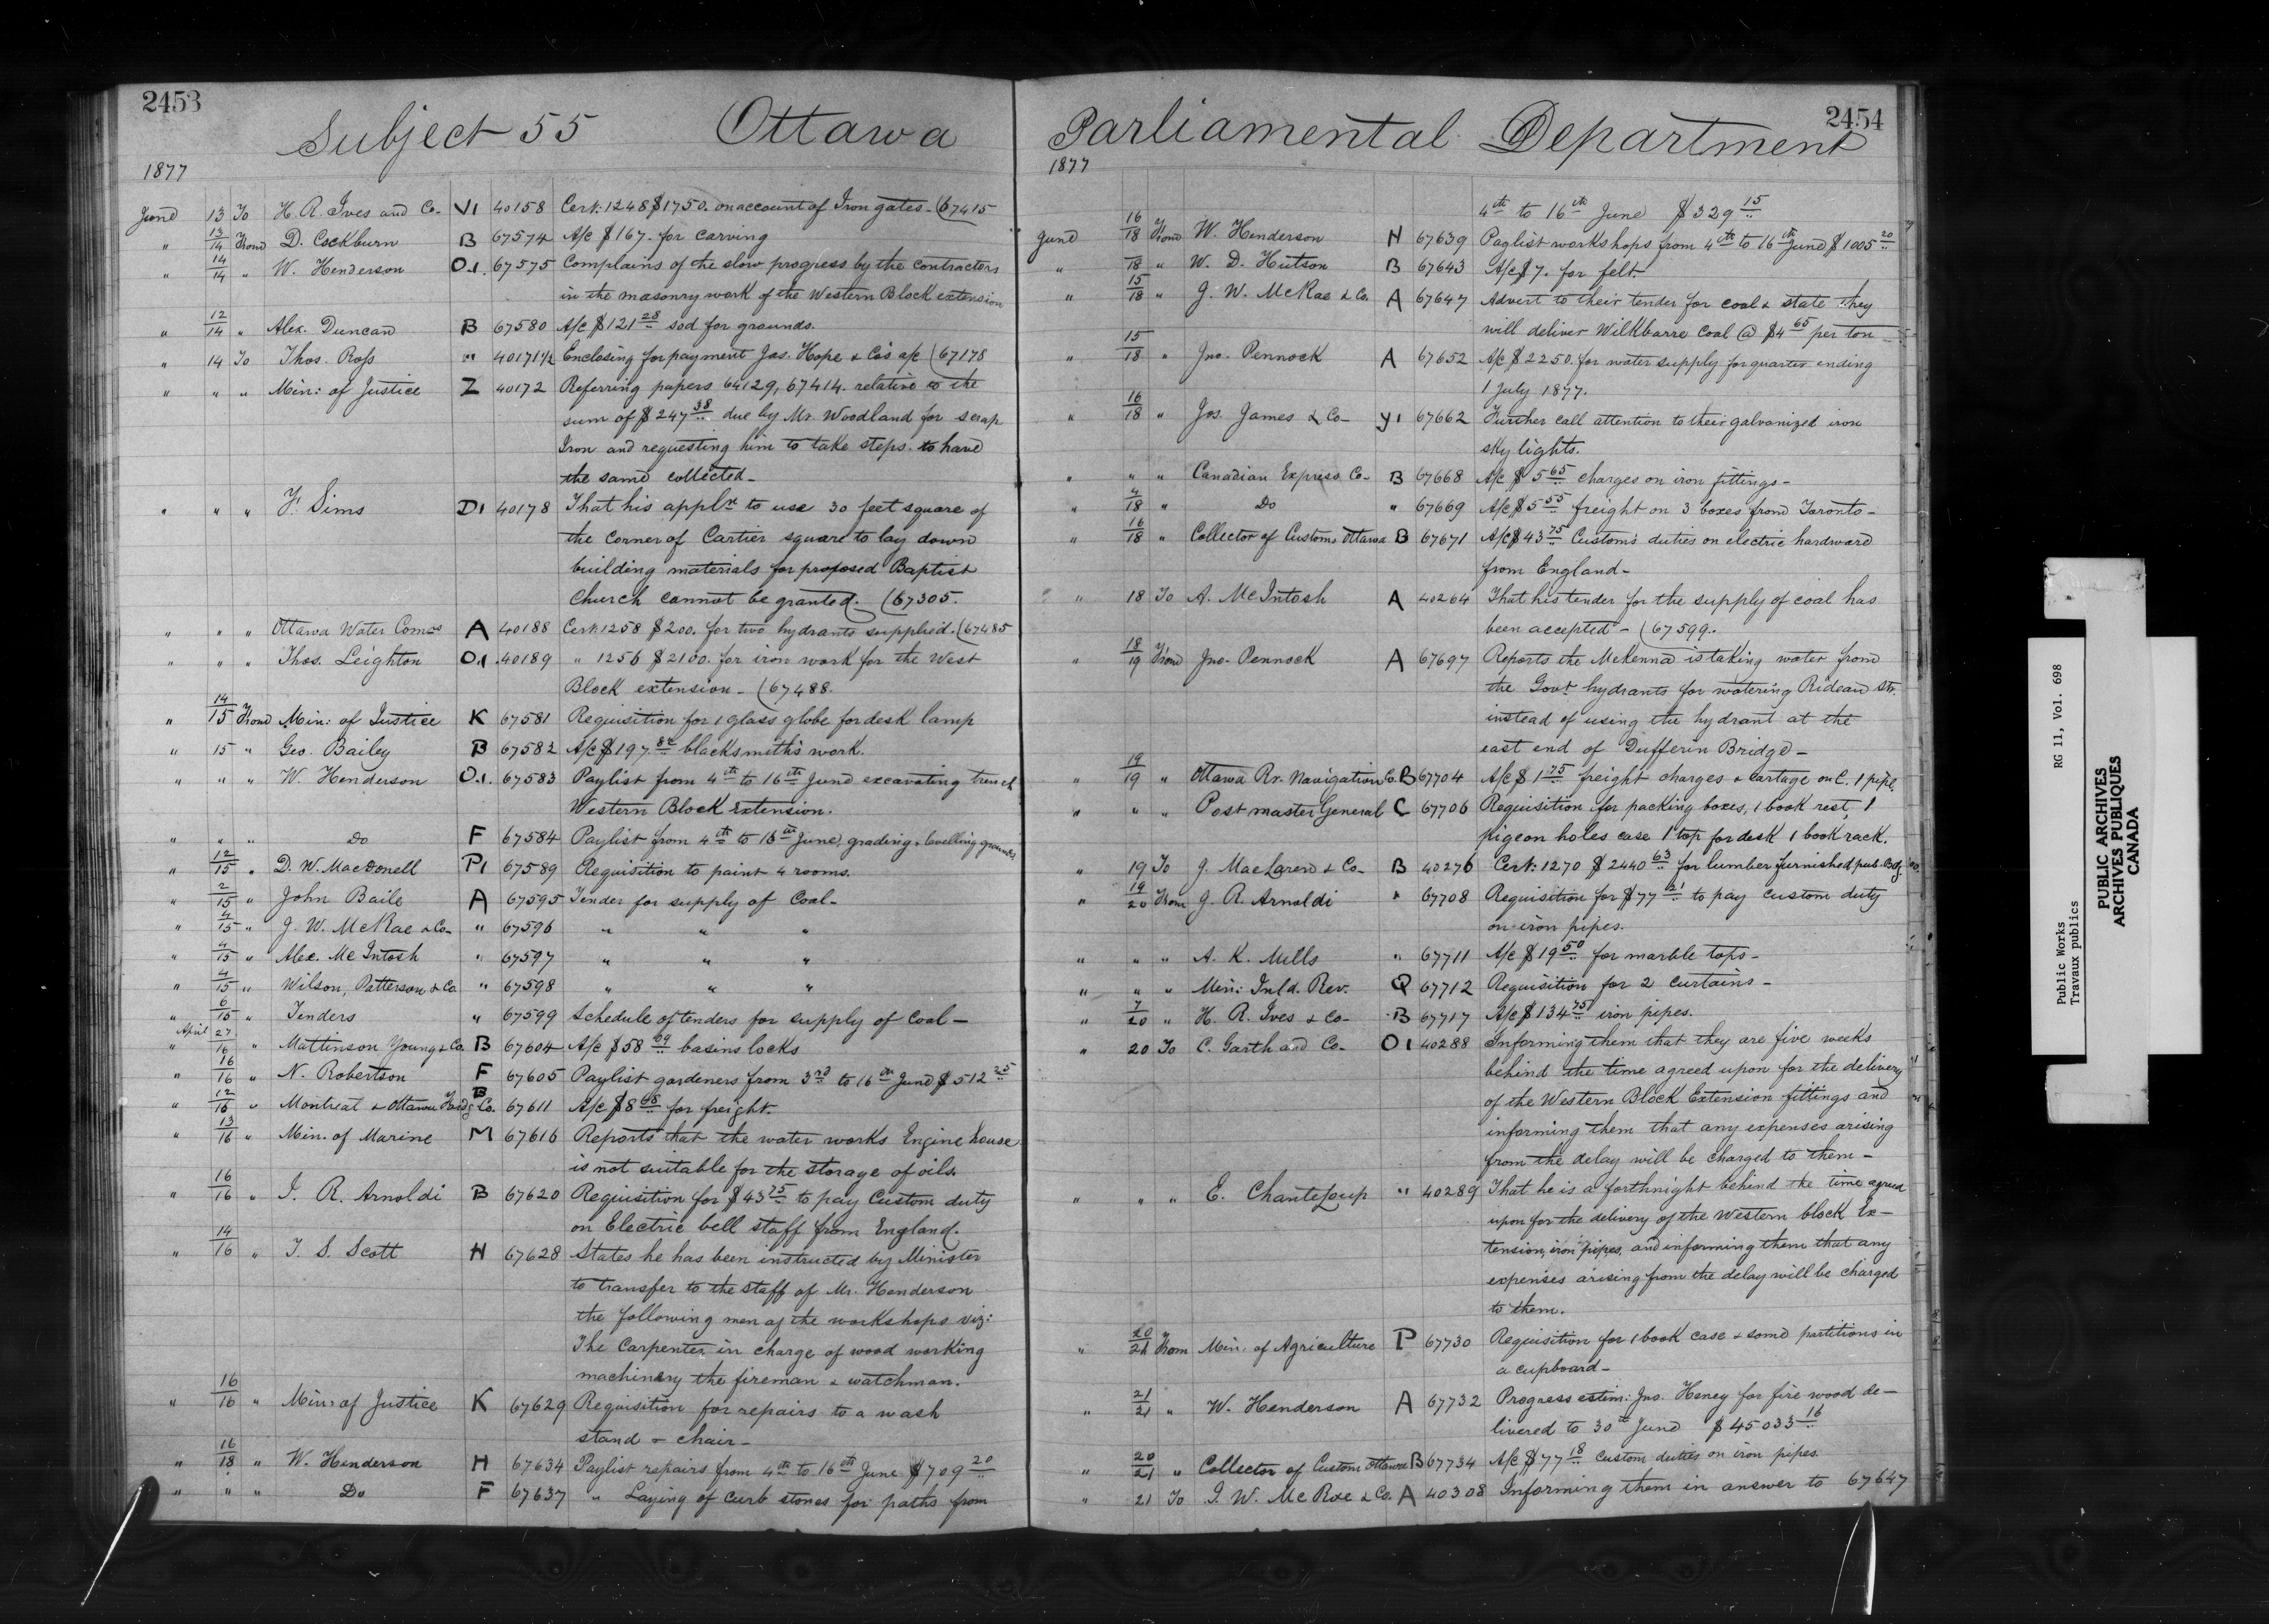 2453
Subject 55 Ottawa
1877
June 13 To H. R. Ives and Co- V1 40158 Cert: 1248 $1750. on account of Iron gates- (67415
" 13/14 From D. Cockburn B 67574 A/c $167. for carving
" 14/14 " W. Henderson O.1. 67575 Complains of the slow progress by the contractors
in the masonry work of the Western Block extension
" 12/14 " Alex. Duncan B 67580 A/c $121 28 sod for grounds.
" 14 To Thos. Ross " 40171½ Enclosing for payment Jas. Hope & Co's a/c (67178
" " " Min: of Justice Z 40172 Referring papers 64129, 67414. relative to the
sum of $247 38 due by Mr. Woodland for scrap
Iron and requesting him to take steps to have
the same collected-
" " " F. Sims D1 40178 That his appln to use 30 feet square of
the corner of Cartier square to lay down
building materials for proposed Baptist
Church cannot be granted. (67305.
" " " Ottawa Water Coms A 40188 Cert: 1258 $200. for two hydrants supplied. (67485
" " " Thos. Leighton O.1 40189 " 1256 $2100. for iron work for the West
Block extension- (67488.
" 14/15 From Min: of Justice K 67581 Requisition for 1 glass globe for desk lamp
" 15 " Geo. Bailey B 67582 A/c $197 blacksmith's work.
" " " W. Henderson O.1. 67583 Paylist from 4th to 16th June excavating trench
Western Block Extension.
" " " Do F 67584 Paylist from 4th to 16th June, grading & levelling grounds
" 12/15 " D. W. Macdonell P1 67589 Requisition to paint 4 rooms.
" 2/15 " John Baile A 67595 Tender for supply of Coal-
" 4/15 " J. W. McRae & Co- " 67596 " " "
" 4/15 " Alex. McIntosh " 67597 " " "
" 4/15 " Wilson, Patterson & Co. " 67598 " " "
" 6/15 " Tenders " 67599 Schedule of tenders for supply of Coal-
" April 27/16 " Mattinson Young & Co. B 67604 A/c $58 09 basins locks
" 16/16 " N. Robertson F 67605 Paylist gardeners from 3rd to 16th June $512 25
" 12/16 " Montreal & Ottawa Co. B 67611 A/c $8 68 for freight.
" 13/16 " Min. of Marine M 67616 Reports that the water works Engine house
is not suitable for the storage of oils.
" 16/16 " J. R. Arnoldi B 67620 Requisition for $43 75 to pay Custom duty
on Electric bell staff from England.
" 14/16 " T. S. Scott H 67628 States he has been instructed by Minister
to transfer to the staff of Mr. Henderson
the following men of the workshops viz:
The Carpenter in charge of wood working
machinery the fireman & watchman.
" 16/16 " Min: of Justice K 67629 Requisition for repairs to a wash
stand & chair-
" 16/18 " W. Henderson H 67634 Paylist repairs from 4th to 16th June $709 20
" " " Do F 67637 " Laying of curb stones for paths from
2454
Parliamental Department
1877
4th to 16th June $329 15
June 16/18 From W. Henderson H 67639 Paylist workshops from 4th to 16th June $1005 20
" /18 " W. D. Hutson B 67643 A/c $7. for felt.
" 15/18 " J. W. McRae & Co. A 67647 Advert to their tender for coal & state they
will deliver Wilkbarre Coal @ $4 65 per ton-
" 15/18 " Jno. Pennock A 67652 A/c $2250. for water supply for quarter ending
1 July 1877.
" 16/18 " Jos. James & Co- Y1 67662 Further call attention to their galvanized iron
sky lights.
" " " Canadian Express Co- B 67668 A/c $5 65 charges on iron fittings-
" 4/18 " Do " 67669 A/c $5 55 freight on 3 boxes from Toronto-
" 16/18 " Collector of Customs Ottawa B 67671 A/c $43 75 Custom's duties on electric hardward
from England-
" 18 To A. McIntosh A 40264 That his tender for the supply of coal has
been accepted- (67599.
" 18/19 From Jno- Pennock A 67697 Reports the McKenna is taking water from
the Govt hydrants for watering Rideau Str.
instead of using the hydrant at the
east end of Dufferin Bridge-
" 19/19 " Ottawa Rr. Navigation Co. B 67704 A/c $1 75 freight charges & cartage on C. 1 pipe
" " " Post master General C 67706 Requisition for packing boxes, 1 book rest, 1
pigeon holes case 1 top for desk 1 book rack.
" 19 To J. MacLaren & Co- B 40276 Cert: 1270 $2440 63 for lumber furnished pub. Bdg.
" 19/20 From J. R. Arnoldi " 67708 Requisition for $77 21 to pay custom duty
on iron pipes.
" " " A. K. Mills " 67711 A/c $19 50 for marble tops-
" " " Min: Inld. Rev. Q 67712 Requisition for 2 curtains-
" 7/20 " H. R. Ives & Co- B 67717 A/c $134 75 iron pipes.
" 20 To C. Garth and Co- O1 40288 Informing them that they are five weeks
behind the time agreed upon for the delivery
of the Western Block Extension fittings and
informing them that any expenses arising
from the delay will be charged to them-
" " " E. Chanteloup " 40289 That he is a forthnight behind the time agreed
upon for the delivery of the Western block Ex-
tension, iron pipes, and informing them that any
expenses arising from the delay will be charged
to them.
" 20/21 From Min. of Agriculture P 67730 Requisition for 1 book case & some partitions in
a cupboard-
" 21/21 " W. Henderson A 67732 Progress estim: Jno. Heney for fire wood de-
livered to 30th June $45033 16
" 20/21 " Collector of Custom Ottawa B 67734 A/c $77 18 custom duties on iron pipes.
" 21 To J. W. McRae & Co. A 40308 Informing them in answer to 67647
Public Works RG 11, Vol. 698
Travaux publics
PUBLIC ARCHIVES
ARCHIVES PUBLIQUES
CANADA